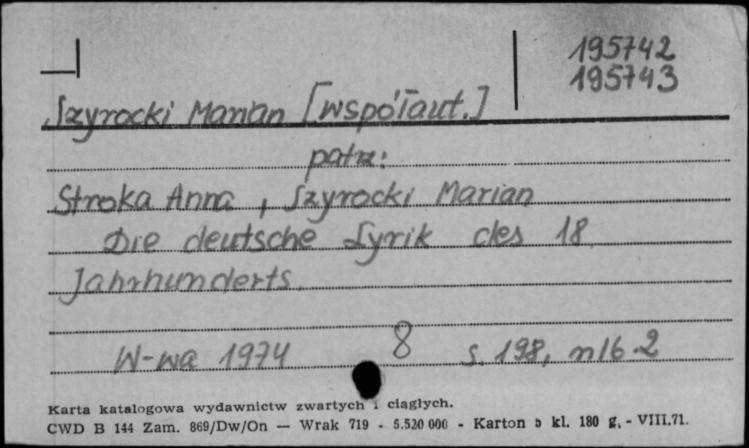 195742
195743
Szyrocki Marian [współaut.]
patrz:
Stroka Anna, Szyrocki Marian
Die deutsche Lyrik des 18.
Jahrhunderts.
W-wa 1974 8 s. 198, nlb 2
Karta katalogowa wydawnictw zwartych i ciągłych.
CWD B 144 Zam. 869/Dw/On — Wrak 719 - 5.520 000 - Karton b kl. 180 g, - VIII.71.